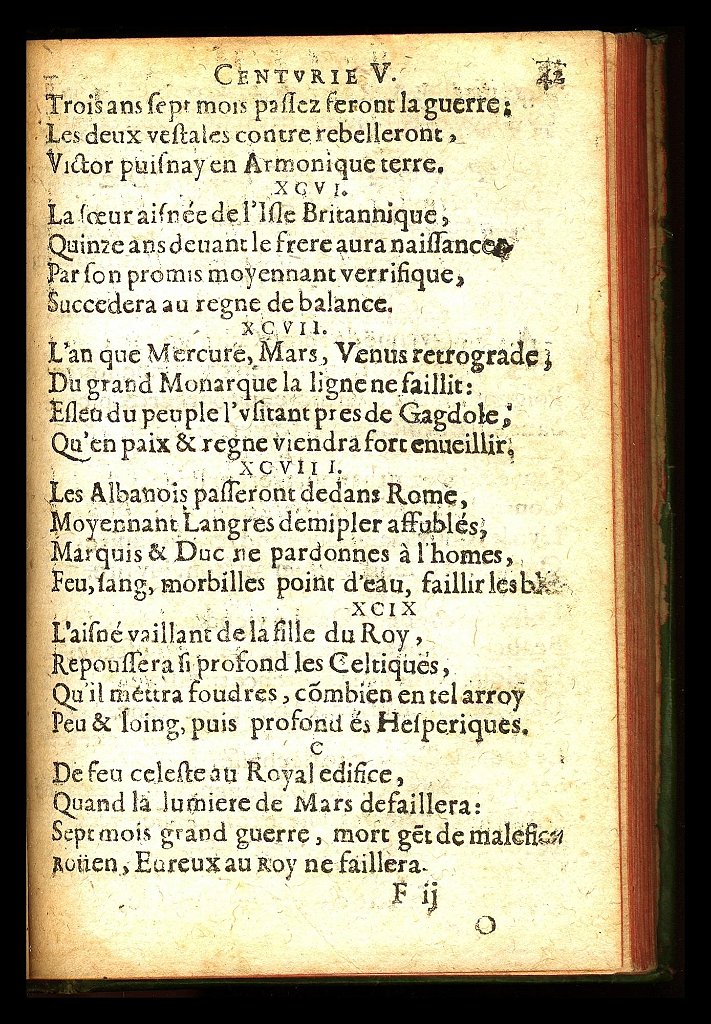 CENTVRIE V. 42
Trois ans ſept mois paſſez feront la guerre;
Les deux veſtales contre rebelleront,
Victor puiſnay en Armonique terre.
XCVI.
La ſœur aiſnée de l'Iſle Britannique,
Quinze ans deuant le frere aura naiſſance
Par ſon promis moyennant verrifique,
Succedera au regne de balance.
XCVII.
L'an que Mercure, Mars, Venus retrograde;
Du grand Monarque la ligne ne faillit:
Eſleu du peuple l'vſitant pres de Gagdole;
Qu'en paix & regne viendra fort enueillir.
XCVIII.
Les Albanois paſſeront dedans Rome,
Moyennant Langres demipler affublés,
Marquis & Duc ne pardonnes à l'homes,
Feu, ſang, morbilles point d'eau, faillir les
XCIX
L'aiſné vaillant de la fille du Roy,
Repouſſera ſi profond les Celtiques,
Qu'il mettra foudres, cõmbien en tel arroy
Peu & loing, puis profond és Heſperiques.
C
De feu celeſte au Royal edifice,
Quand la lumiere de Mars defaillera:
Sept mois grand guerre, mort gẽt de malefice
Roüen, Eureux au Roy ne faillera.
F ij
O